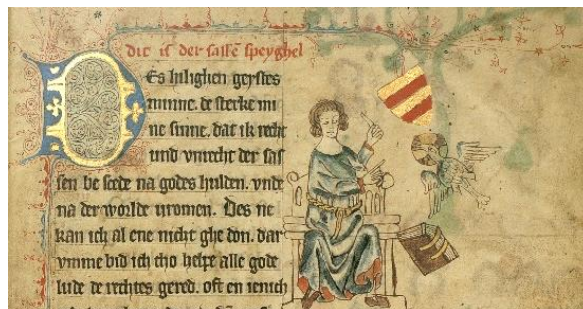 dit is der sassē speyghel
Des hilighen geystes
minne. de stercke mi
ne sinne. dat ik recht
und vnrecht der sas
sen be scede na godes hulden. vnde
na derworlde vromen. Des ne
kan ich al ene nicht ghe don. dar
vmme bid ich tho helpe alle gode
lude de rechtes gered. oft en ienich